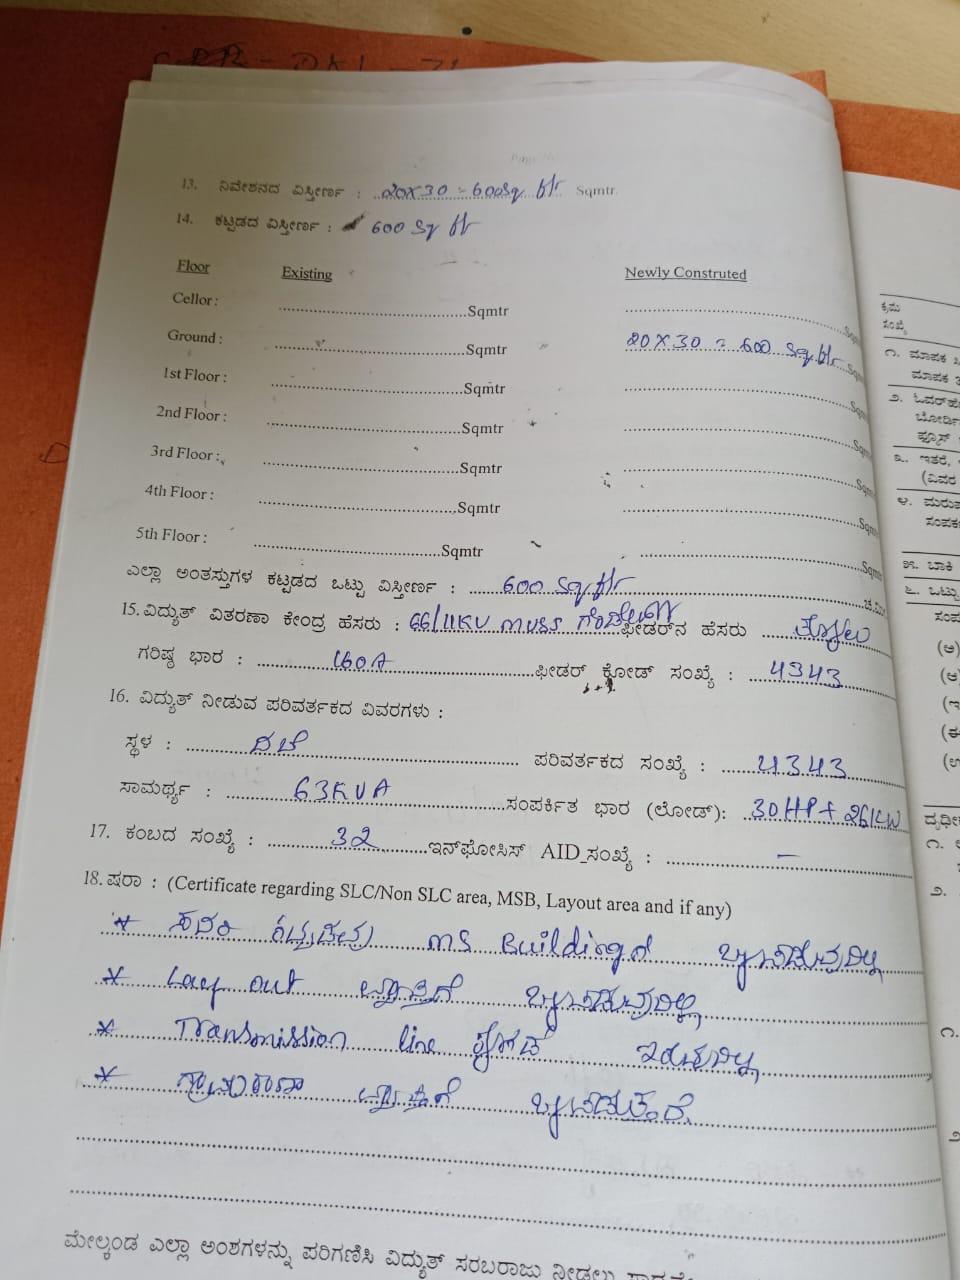 13. ನಿವೇಶನದ ವಿಸ್ತೀರ್ಣ : 20X30 = 600Sq ft Sqmtr.
14. ಕಟ್ಟಡದ ವಿಸ್ತೀರ್ಣ : 600 Sq ft
Floor Existing Newly Construted
Cellor : Sqmtr
Ground : Sqmtr 20X30 = 600 Sq ft
1st Floor : Sqmtr
2nd Floor : Sqmtr
3rd Floor : Sqmtr
4th Floor : Sqmtr
5th Floor : Sqmtr
ಎಲ್ಲಾ ಅಂತಸ್ತುಗಳ ಕಟ್ಟಡದ ಒಟ್ಟು ವಿಸ್ತೀರ್ಣ : 600 Sq ft ಚ.ಮೀ
15. ವಿದ್ಯುತ್ ವಿತರಣಾ ಕೇಂದ್ರ ಹೆಸರು : 66/11KV MUSS ಫೀಡರ್‌ನ ಹೆಸರು
ಗರಿಷ್ಠ ಭಾರ : 160A ಫೀಡರ್ ಕೋಡ್ ಸಂಖ್ಯೆ : 4343
16. ವಿದ್ಯುತ್ ನೀಡುವ ಪರಿವರ್ತಕದ ವಿವರಗಳು :
ಸ್ಥಳ : ಪರಿವರ್ತಕದ ಸಂಖ್ಯೆ : 4343
ಸಾಮರ್ಥ್ಯ : 63KVA ಸಂಪರ್ಕಿತ ಭಾರ (ಲೋಡ್): 30HP+26KW
17. ಕಂಬದ ಸಂಖ್ಯೆ : 32 ಇನ್‌ಫೋಸಿಸ್ AID ಸಂಖ್ಯೆ : –
18. ಷರಾ : (Certificate regarding SLC/Non SLC area, MSB, Layout area and if any)
* ಸದರಿ ಕಟ್ಟಡವು MS Buildingಗೆ ಒಳಪಡುವುದಿಲ್ಲ
* Lay out ವ್ಯಾಪ್ತಿಗೆ ಒಳಪಡುವುದಿಲ್ಲ
* Transmission line ಕೆಳಗಡೆ ಇರುವುದಿಲ್ಲ
* ಗ್ರಾಮಠಾಣಾ ವ್ಯಾಪ್ತಿಗೆ ಒಳಪಡುತ್ತದೆ.
ಮೇಲ್ಕಂಡ ಎಲ್ಲಾ ಅಂಶಗಳನ್ನು ಪರಿಗಣಿಸಿ ವಿದ್ಯುತ್ ಸರಬರಾಜು ನೀಡಲು
ಕ್ರಮ
ಸಂಖ್ಯೆ
೧. ಮಾಪಕ
ಮಾಪಕ
೨. ಓವರ್‌ಹೆ
ಬೋರ್ಡಿ
ಫ್ಯೂಸ್
೩. ಇತರೆ,
(ವಿವರ
೪. ಮರುಸ
ಸಂಪರ್ಕ
೫. ಬಾಕಿ
೬. ಒಟ್ಟು
ಸಂಪ
(ಅ)
(ಆ)
(ಇ)
(ಈ)
(ಉ)
ದೃಢೀ
೧.
೨.
೧.
೨